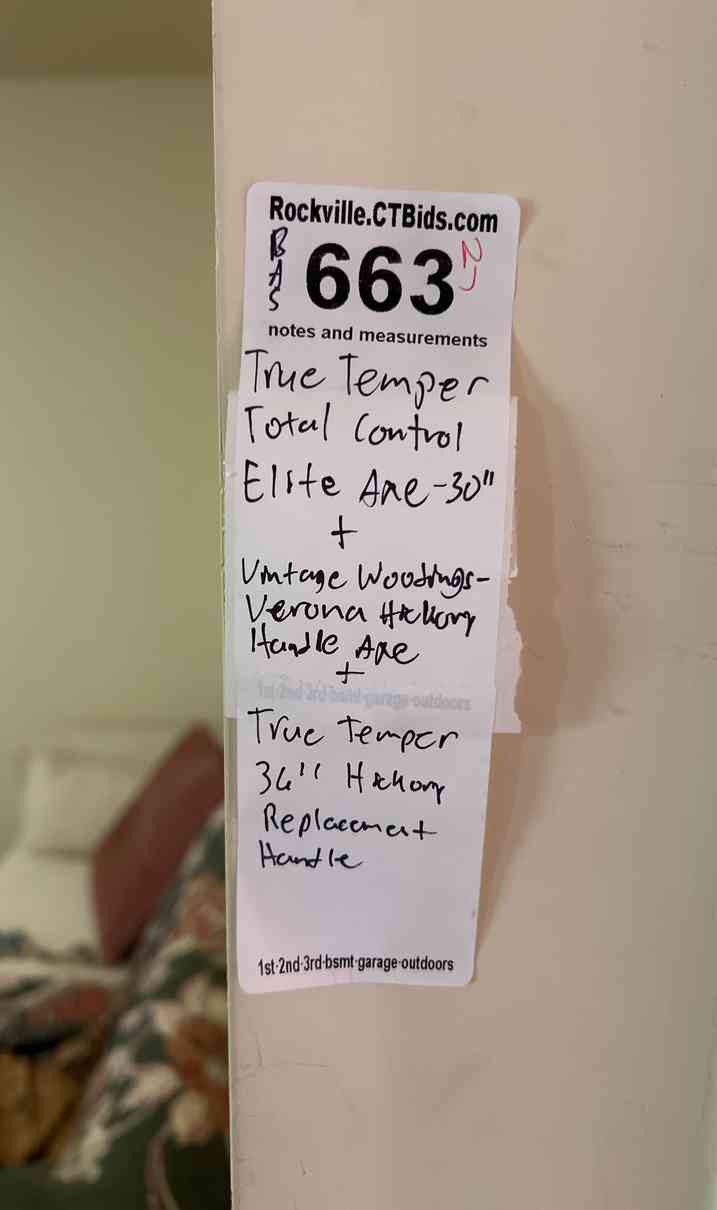 Rockville.CTBids.com
BAS
663
NJ
notes and measurements
True Temper
Total Control
Elite Axe-30"
+
Vintage Woodings-
Verona Hickory
Handle Axe
+
1st-2nd-3rd-bsmt-garage-outdoors
True Temper
36" Hickory
Replacement
Handle
1st-2nd-3rd-bsmt-garage-outdoors